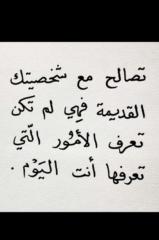 تصالح مع شخصيتك
القديمة فهي لم تكن
تعرف الأمُور الّتي
تعرفها أنت اليَوْم .